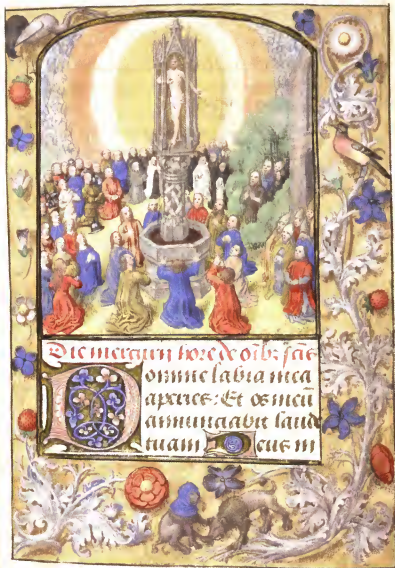 Die mercurii hore de oĩbʒ scĩs
Domine labia mea
aperies: Et os meũ
annunciabit laudẽ
tuam Deus in